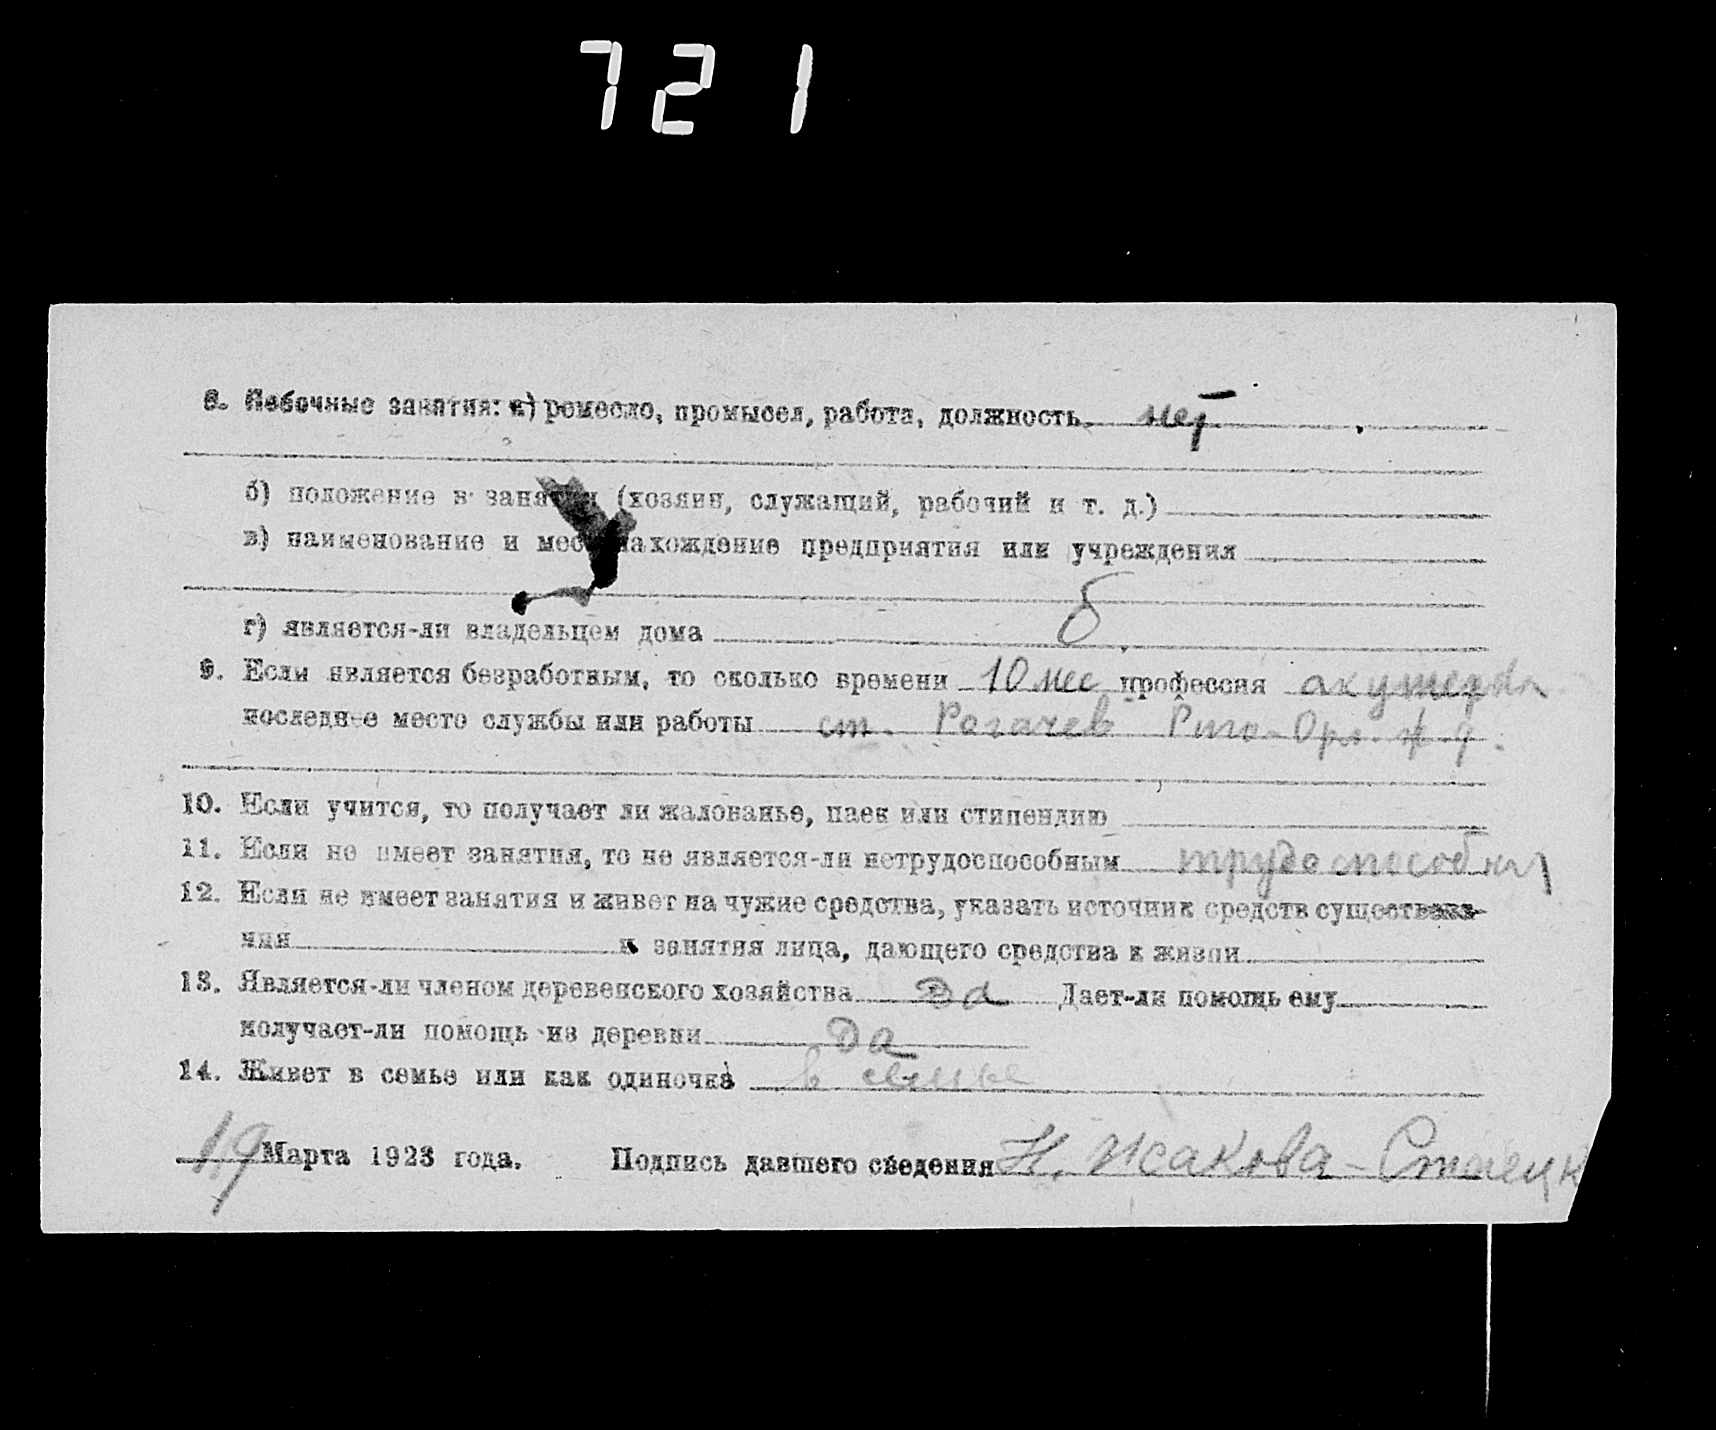 721
8. Побочные занятия: а) ремесло, промысел, работа, должность нет
б) положение в занятии (хозяин, служащий, рабочий и т. д.)
в) наименование и местонахождение предприятия или учреждения
г) является-ли владельцем дома
9. Если является безработным, то сколько времени 10 мес профессия акушерка
последнее место службы или работы ст. Рогачев Риго-Орл. ж. д.
10. Если учится, то получает ли жалованье, паек или стипендию
11. Если не имеет занятия, то не является-ли нетрудоспособным трудоспособна
12. Если не имеет занятия и живет на чужие средства, указать источник средств существова-
ния и занятия лица, дающего средства к жизни
13. Является-ли членом деревенского хозяйства Да Дает-ли помощь ему
получает-ли помощь из деревни Да
14. Живет в семье или как одиночка в семье
19 Марта 1923 года. Подпись давшего сведения Н. Жакова-